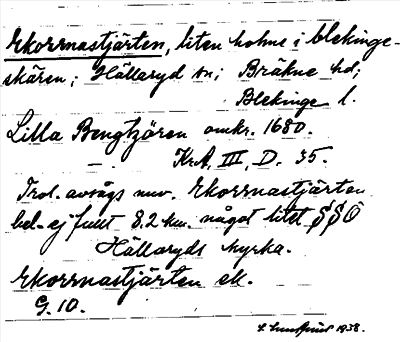 Ekorrnastjärten, liten holme i blekinge-
skären; Hällaryd sn; Bräkne hd;
Blekinge l.
Lilla Bengtzören omkr. 1680.
KrA, III, D. 35.
Trol. avsågs nuv. Ekorrnastjärten
bel. ej fullt 8.2 km. något litet SSO
Hällaryds kyrka.
Ekorrnastjärten ek.
G. 10.
1938.